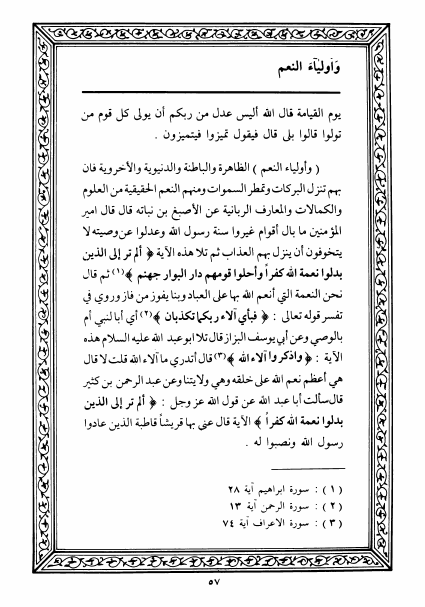 وَأوليَآءَ النعم
يوم القيامة قال الله أليس عدل من ربكم أن يولى كل قوم من
تولوا قالوا بلى قال فيقول تميزوا فيتميزون .
( وأولياء النعم ) الظاهرة والباطنة والدنيوية والأخروية فان
بهم تنزل البركات وتمطر السموات ومنهم النعم الحقيقية من العلوم
والكمالات والمعارف الربانية عن الأصبغ بن نباته قال قال امير
المؤمنين ما بال أقوام غيروا سنة رسول الله وعدلوا عن وصيته لا
يتخوفون أن ينزل بهم العذاب ثم تلا هذه الآية ﴿ ألم تر إلى الذين
بدلوا نعمة الله كفراً وأحلوا قومهم دار البوار جهنم ﴾(١) ثم قال
نحن النعمة التي أنعم الله بها على العباد وبنا يفوز من فاز وروي في
تفسر قوله تعالى : ﴿ فبأي آلاء ربكما تكذبان ﴾(٢) أي أبالنبي أم
بالوصي وعن أبي يوسف البزاز قال تلا ابو عبد الله عليه السلام هذه
الآية : ﴿ واذكروا آلاء الله ﴾(٣) قال أتدري ما آلاء الله قلت لا قال
هي أعظم نعم الله على خلقه وهي ولايتنا وعن عبد الرحمن بن كثير
قال سألت أبا عبد الله عن قول الله عز وجل : ﴿ ألم تر إلى الذين
بدلوا نعمة الله كفراً ﴾ الآية قال عنى بها قريشاً قاطبة الذين عادوا
رسول الله ونصبوا له .
( ١ ) : سورة ابراهيم آية ٢٨
( ٢ ) : سورة الرحمن آية ١٣
( ٣ ) : سورة الاعراف آية ٧٤
٥٧